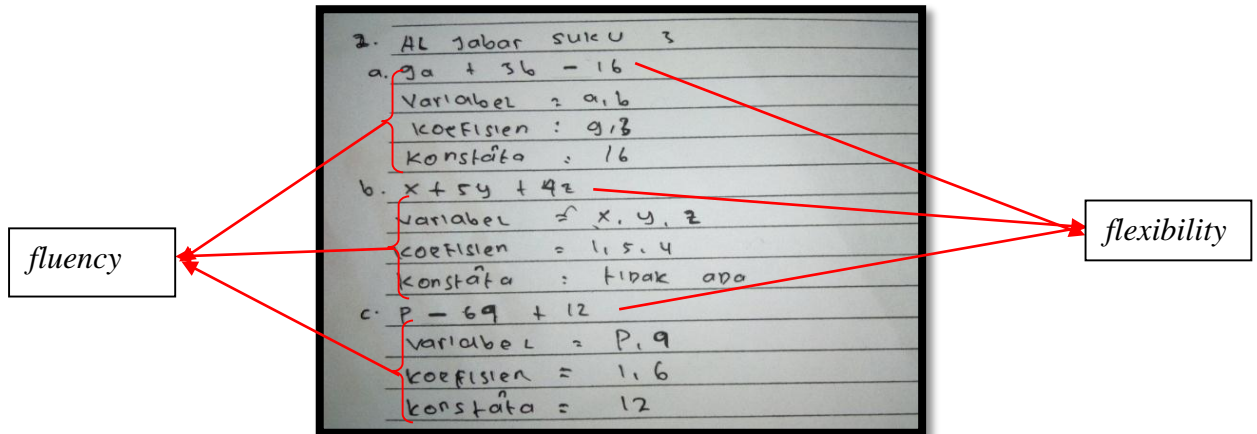 1. AL Jabar suku 3
a. 9a + 3b - 16
Variabel = a, b
Koefisien : 9, 3
Konstata : 16
b. x + 5y + 4z
Variabel = x, y, z
Koefisien = 1, 5, 4
Konstata : tidak ada
c. P - 6q + 12
Variabel = P, q
Koefisien = 1, 6
Konstata = 12
fluency
flexibility